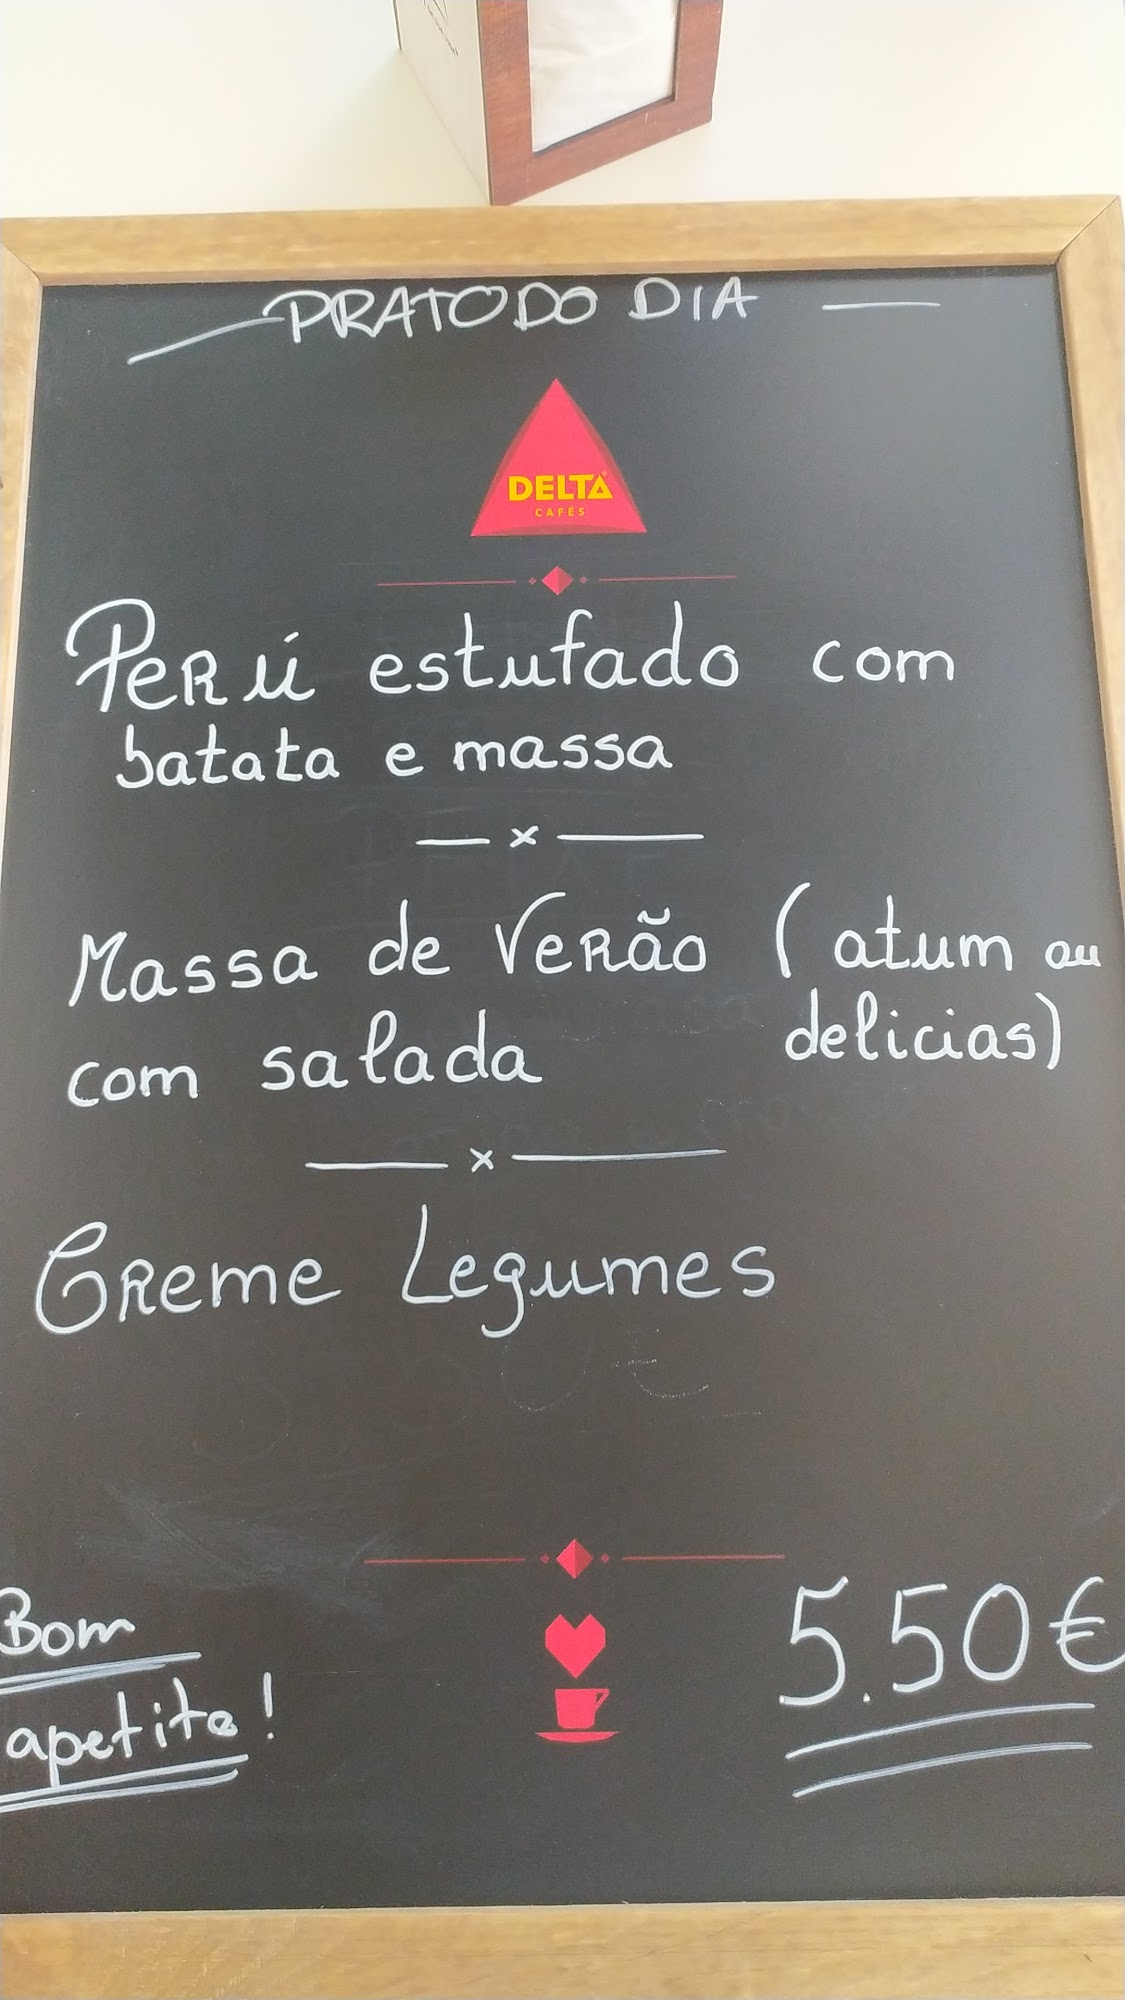 PRATO DO DIA
DELTA
CAFÉS
Perú estufado com
batata e massa
Massa de Verão (atum ou
com salada delicias)
Creme Legumes
Bom
apetite!
5.50€